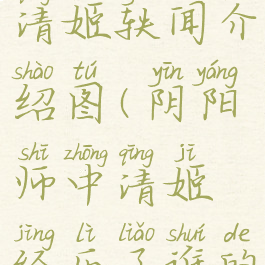 清姬轶闻介
shào tú yīn yáng
绍图(阴阳
shī zhōng qīng jī
师中清姬
jīng lì liǎo shuí de
经历了谁的